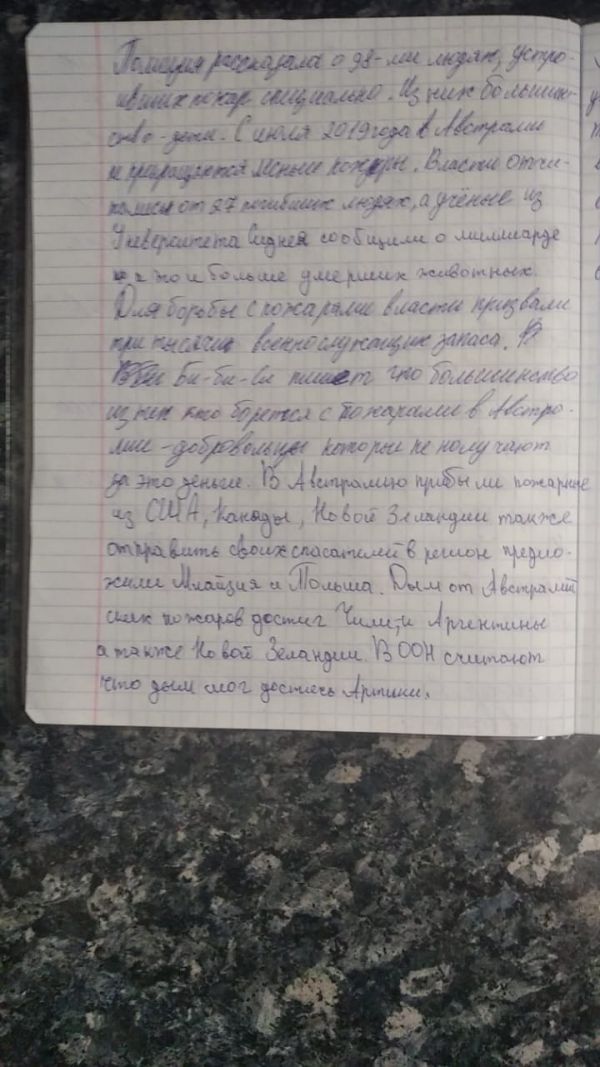 Полиция рассказала о 98-ми людях, устро-
ивших пожар специально. Из них большин-
ство - дети. С июля 2019 года в Австралии
не прекращаются лесные пожары. Власти отчи-
тались от 27 погибших людях, а учёные из
Университета Сиднея сообщили о миллиарде
а то и больше умерших животных.
Для борьбы с пожарами власти призвали
три тысячи военнослужащих запаса.
Би-би-си пишет что большинство
из тех кто борется с пожарами в Австра-
лии - добровольцы которые не получают
за это деньги. В Австралию прибыли пожарные
из США, Канады, Новой Зеландии также
отправить своих спасателей в регион предло-
жили Млайзия и Польша. Дым от Австралий
ских пожаров достиг Чили, и Аргентины
а также Новой Зеландии. В ООН считают
что дым мог достичь Арктики.